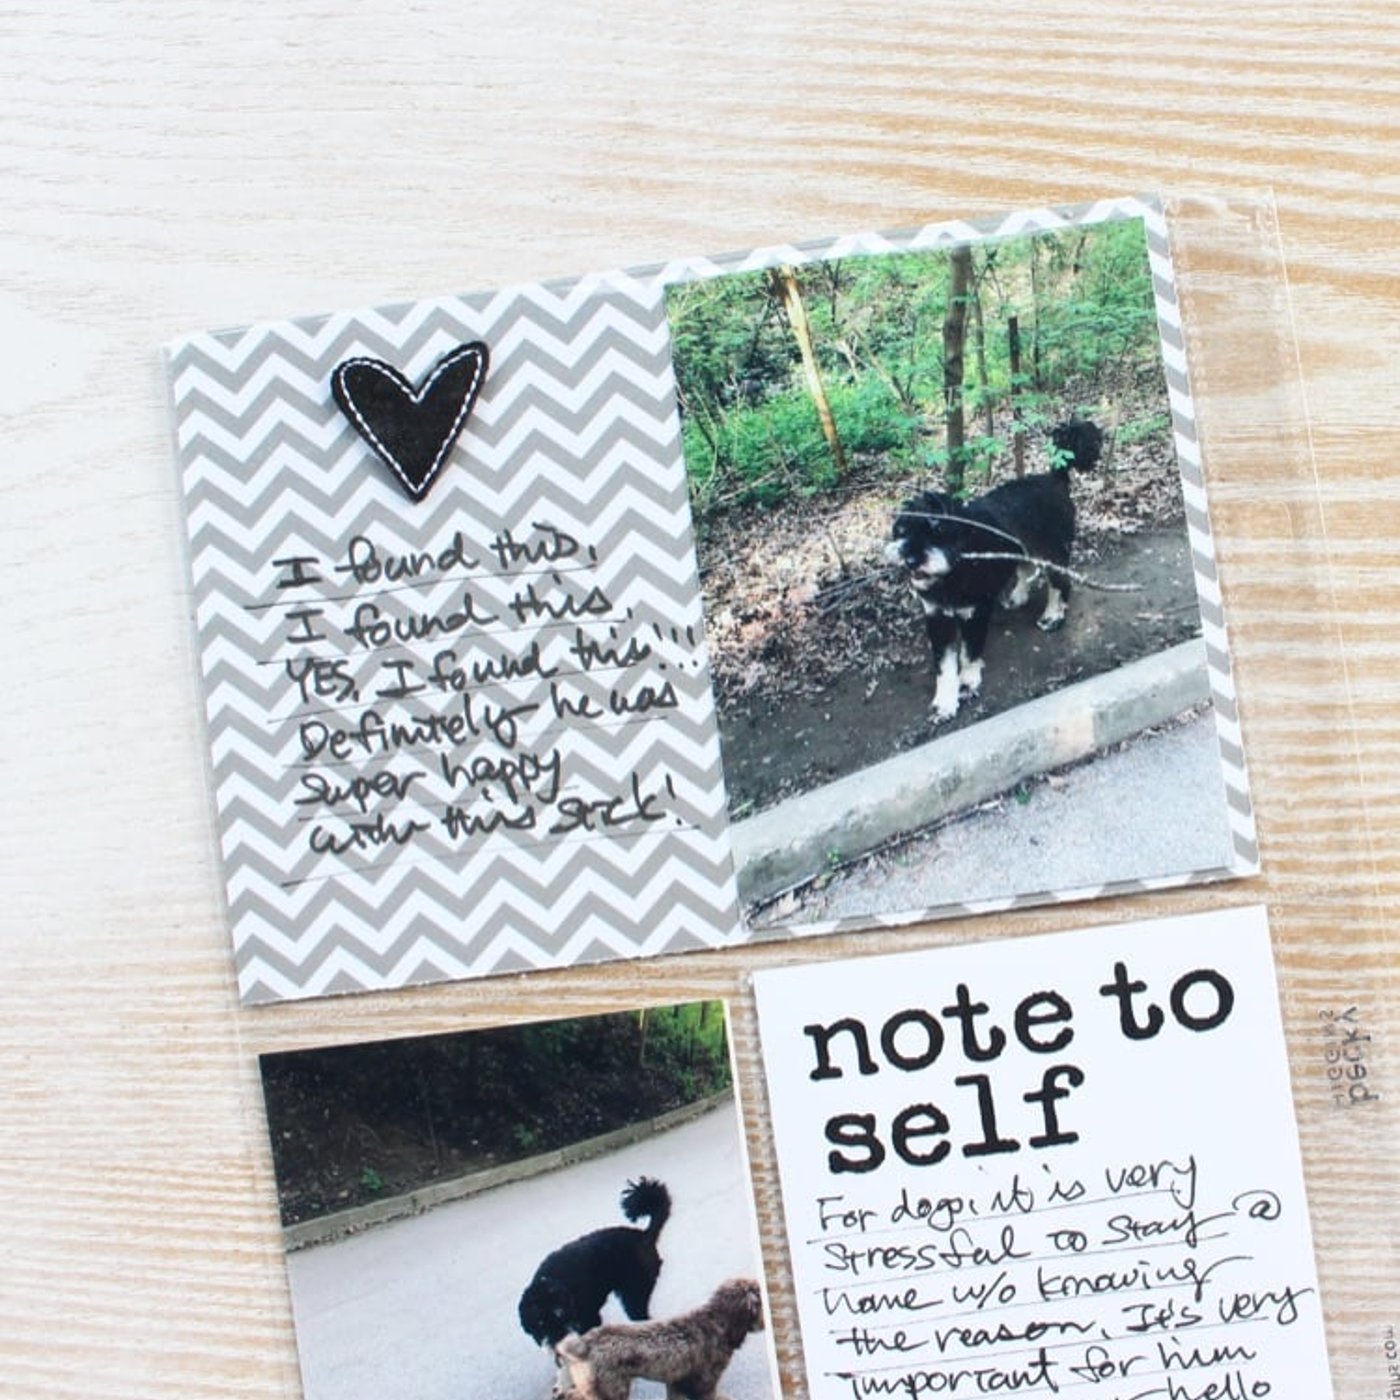 I found this,
I found this,
YES, I found this!!!
Definitely he was
super happy
with this stick!
note to
self
For dogs, it is very
stressful to stay @
home w/o knowing
the reason. It's very
important for him
hello